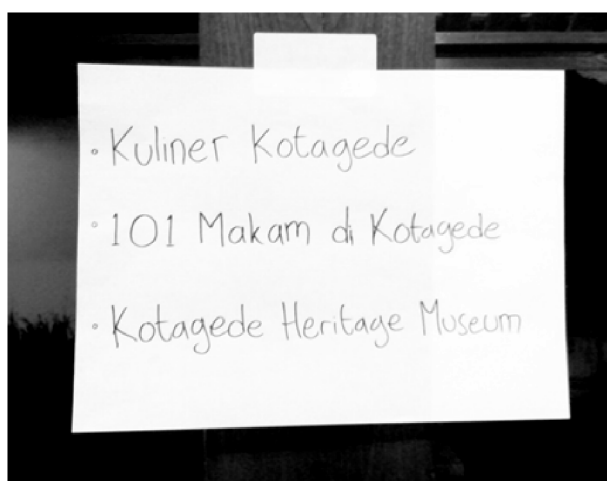 • Kuliner Kotagede
• 101 Makam di Kotagede
• Kotagede Heritage Museum